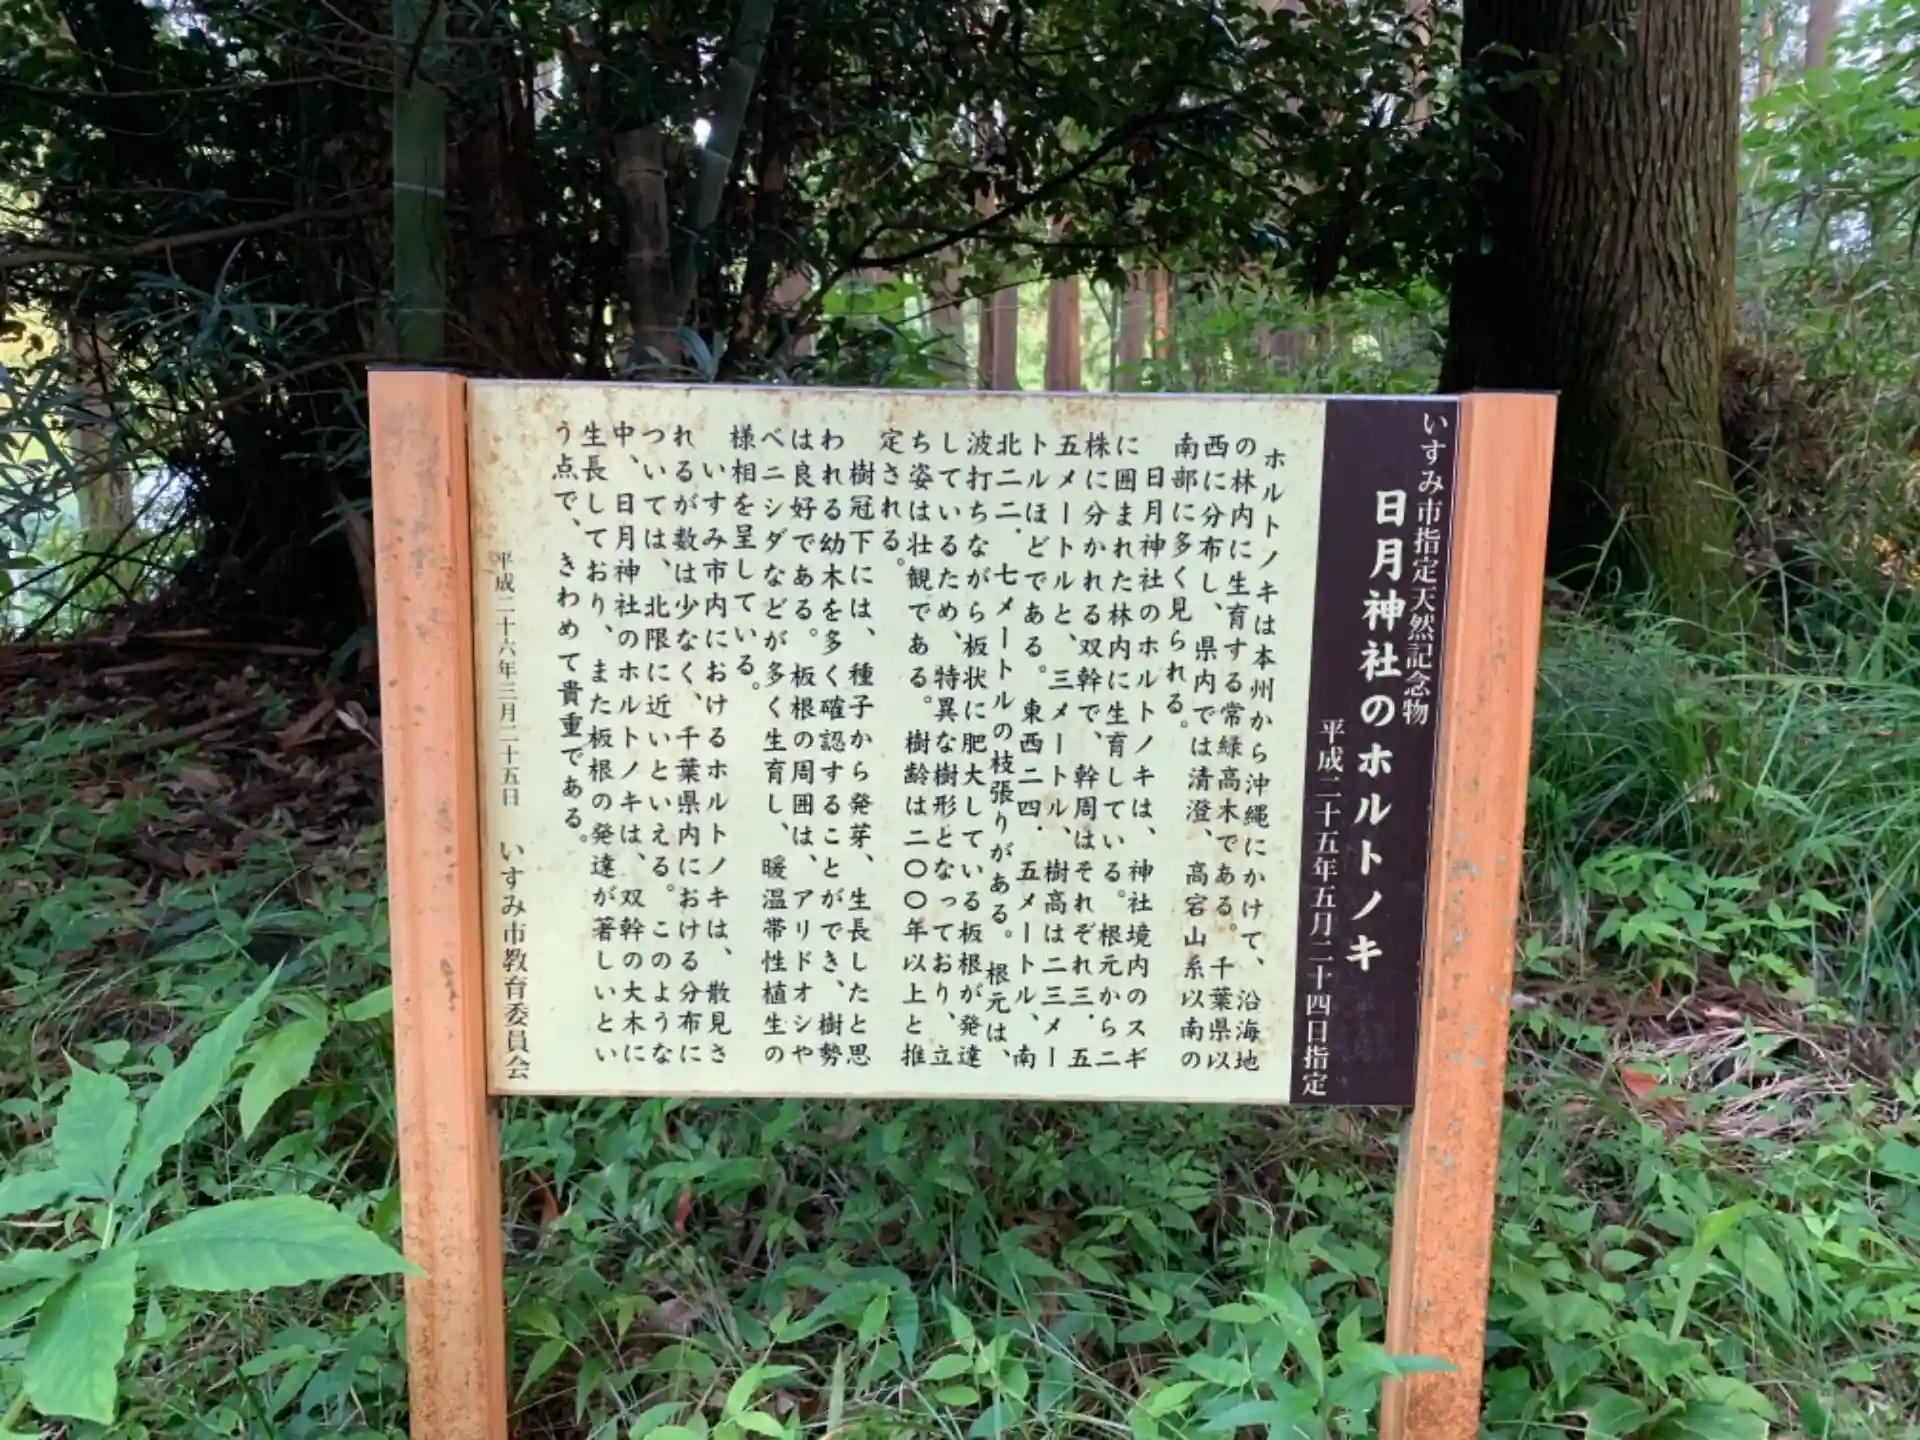 いすみ市指定天然記念物
日月神社のホルトノキ
平成二十五年五月二十四日指定
ホルトノキは本州から沖縄にかけて、沿海地
の林内に生育する常緑高木である。千葉県以
西に分布し、県内では清澄、高宕山系以南の
南部に多く見られる。
日月神社のホルトノキは、神社境内のスギ
に囲まれた林内に生育している。根元から二
株に分かれる双幹で、幹周はそれぞれ三．五
五メートルと、三メートル、樹高は二三メー
トルほどである。東西二四．五メートル、南
北二二．七メートルの枝張りがある。根元は、
波打ちながら板状に肥大している板根が発達
しているため、特異な樹形となっており、立
ち姿は壮観である。樹齢は二〇〇年以上と推
定される。
樹冠下には、種子から発芽、生長したと思
われる幼木を多く確認することができ、樹勢
は良好である。板根の周囲は、アリドオシや
ベニシダなどが多く生育し、暖温帯性植生の
様相を呈している。
いすみ市内におけるホルトノキは、散見さ
れるが数は少なく、千葉県内における分布に
ついては、北限に近いといえる。このような
中、日月神社のホルトノキは、双幹の大木に
生長しており、また板根の発達が著しいとい
う点で、きわめて貴重である。
平成二十六年三月二十五日　いすみ市教育委員会